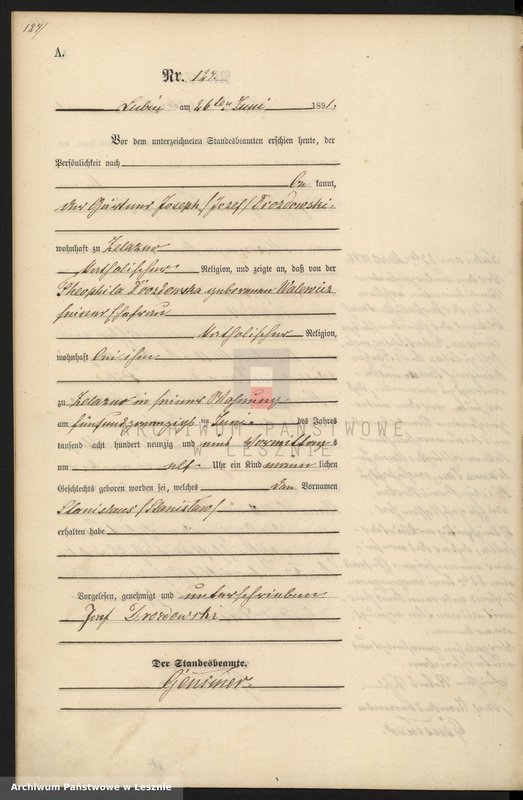 127/
A.
Nr. 127.
Lubin am 26ten Juni 1891.
Vor dem unterzeichneten Standesbeamten erschien heute, der
Persönlichkeit nach
be kannt,
der Gärtner Joseph /Józef/ Drozdowski
wohnhaft zu Zelazno
katholischer Religion, und zeigte an, daß von der
Theophila Drozdowska geborenen Walewicz
seiner Ehefrau
katholischer Religion,
wohnhaft bei ihm
zu Zelazno in seiner Wohnung
am fünfundzwanzigsten Juni des Jahres
tausend acht hundert neunzig und eins Vormittags
um elf Uhr ein Kind männlichen
Geschlechts geboren worden sei, welches den Vornamen
Stanislaus /Stanisław/
erhalten habe
Vorgelesen, genehmigt und unterschrieben
Józef Drozdowski
Der Standesbeamte.
Geusmer.
ARCHIWUM PAŃSTWOWE
W LESZNIE
Archiwum Państwowe w Lesznie